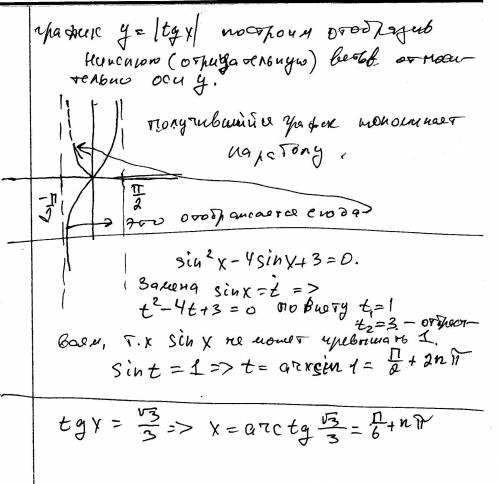 график y = |tg x| построим отобразив
нижнюю (отрицательную) ветвь относи-
тельно оси y.
Получившийся график напоминает
параболу.
-π/2
π/2
это отображается сюда
sin²x - 4sinx + 3 = 0.
Замена sinx = t =>
t² - 4t + 3 = 0 по Виету t₁ = 1
t₂ = 3 - отбрасы-
ваем, т.к sin x не может превышать 1.
sin t = 1 => t = arcsin 1 = π/2 + 2nπ
tg x = √3/3 => x = arctg √3/3 = π/6 + nπ